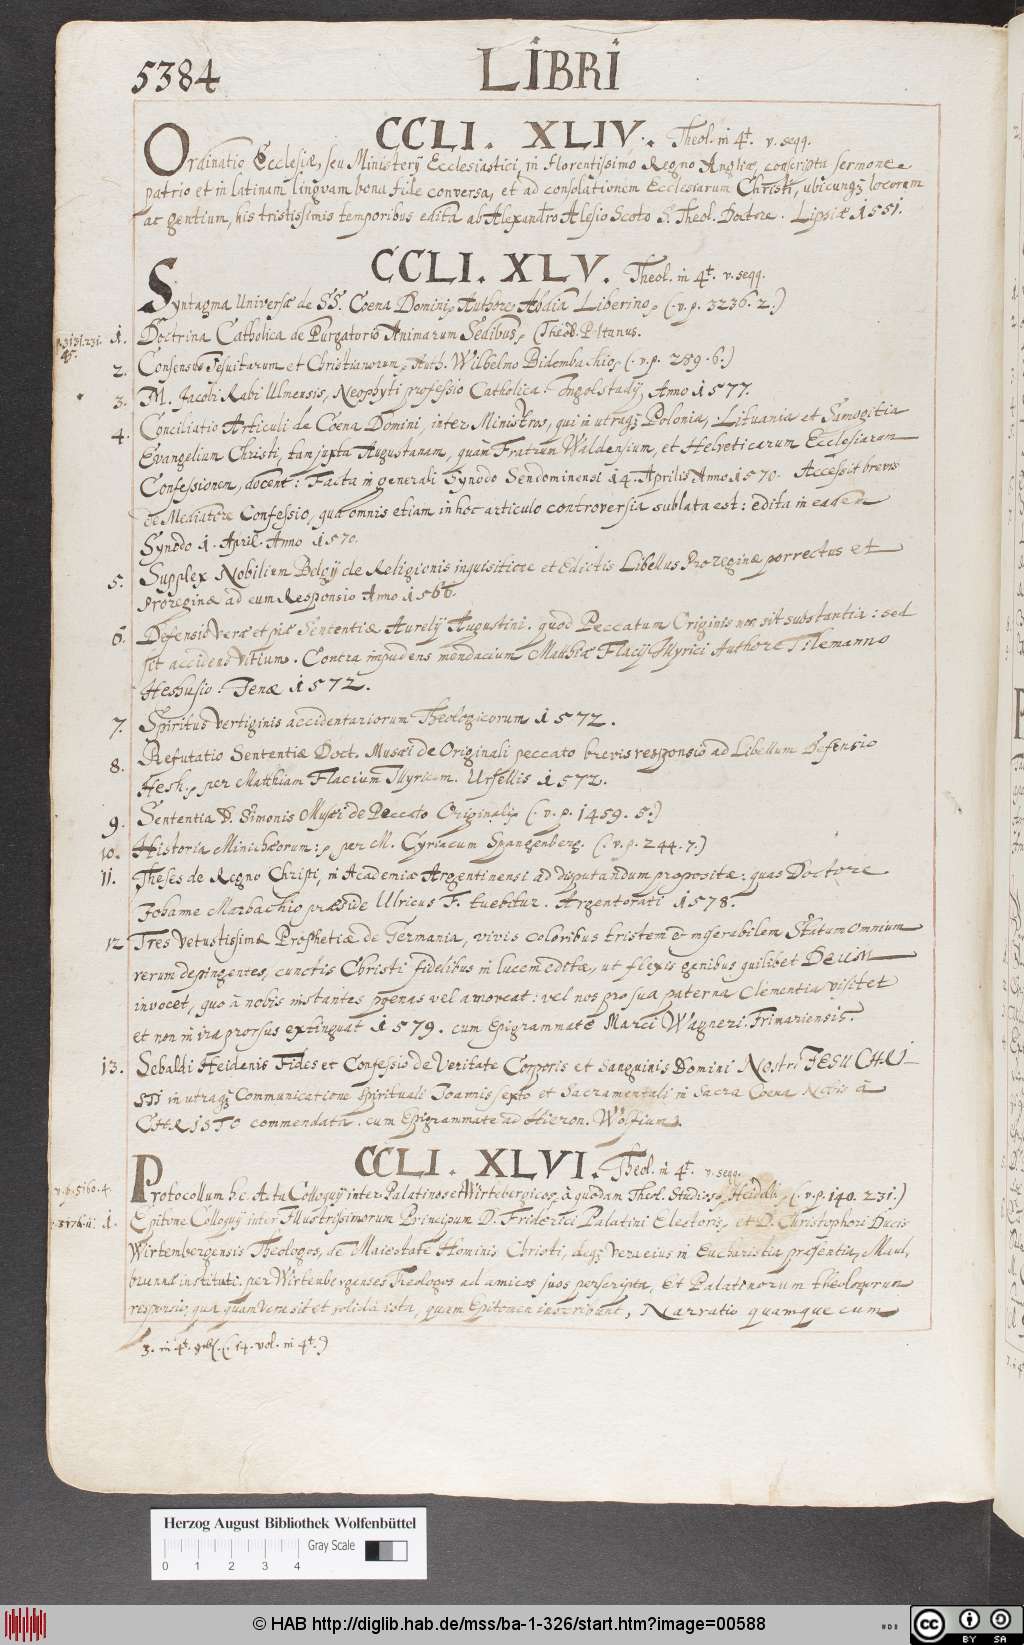 5384
LIBRI
CCLI. XLIV. Theol. in 4t. v. seqq.
Ordinatio Ecclesiæ, seu Ministerij Ecclesiastici, in florentissimo Regno Angliæ, conscripta sermone
patrio et in latinam linguam bona fide conversa, et ad consolationem Ecclesiarum Christi, ubicunq; locorum
ac gentium, his tristissimis temporibus edita ab Alexandro Alesio Scoto S. Theol. Doctore. Lipsiæ 1551.
CCLI. XLV. Theol. in 4t. v. seqq.
Syntagma Universæ de SS. Coena Domini, Authore Abdia Liberino, (. v. p. 3236. 2.)
1. Doctrina Catholica de Purgatorio Animarum Sedibus,
2. Consensus Jesuitarum et Christianorum, Auth. Wilhelmo Bidembachio, (. v. p. 289. 6.)
3. M. Jacobi Rabi Ulmensis, Neophyti professio Catholica. Ingolstadij, Anno 1577.
4. Conciliatio Articuli de Coena Domini, inter Ministros, qui in utraq; Polonia, Lituania et Samogitia
Evangelium Christi, tam juxta Augustanam, quam Fratrum Waldensium, et Helveticarum Ecclesiarum
Confessionem, docent: Facta in generali Synodo Sendominensi 14. Aprilis Anno 1570. Accessit brevis
de Mediatore Confessio, qua omnis etiam in hoc articulo controversia sublata est: edita in eadem
Synodo 1. April. Anno 1570.
5. Supplex Nobilium Belgij de Religionis inquisitione et Edictis Libellus Proreginæ porrectus et
Proreginæ ad eum Responsio Anno 1566.
6. Defensio veræ et piæ Sententiæ Aurelij Augustini. quod Peccatum Originis non sit substantia: sed
sit accidens vitium. Contra impudens mendacium Matthiæ Flacij Illyrici Authore Tilemanno
Heshusio. Jenæ 1572.
7. Spiritus vertiginis accidentariorum Theologicorum 1572.
8. Refutatio Sententiæ Doct. Musæi de Originali peccato brevis responsio ad Libellum Defensio
Hesh., per Matthiam Flacium Illyricum. Ursellis 1572.
9. Sententia D. Simonis Musæi de Peccato Originali, (. v. p. 1459. 5.)
10. Historia Minichæorum:, per M. Cyriacum Spangenberg. (. v. p. 244. 7.)
11. Theses de Regno Christi, in Academia Argentinensi ad disputandum propositæ: quas Doctore
Johanne Marbachio præside Ulricus F. tuebitur. Argentorati 1578.
12 Tres Vetustissimæ Prophetiæ de Germania, vivis coloribus tristem & miserabilem Statum omnium
rerum depingentes, cunctis Christi fidelibus in lucem editæ, ut flexis genibus quilibet Deum
invocet, quo à nobis instantes poenas vel amoveat: vel nos pro sua paterna Clementia visitet
et non in ira prorsus extinguat 1579. cum Epigrammate Marci Wagneri. Frimariensis.
13. Sebaldi Heidenis Fides et Confessio de Veritate Corporis et Sanguinis Domini Nostri JESU CHRI-
STI in utraq; Communicatione Spirituali Joannis sexto et Sacramentali in Sacra Coena Nobis à
CHRISTO commendata. cum Epigrammate ad Hieron. Wolfium.
CCLI. XLVI. Theol. in 4t. v. seqq.
v. p. 5160. 4.
Protocollum h.e. Acta Colloquij inter Palatinos et Wirtebergicos, à quodam Theol. Studioso, Heidelb., (. v. p. 140. 231.)
1. Epitome Colloquij inter Illustrissimorum Principum D. Friderici Palatini Electoris, et D. Christophori Ducis
Wirtembergensis Theologos, de Maiestate Hominis Christi, deq; vera eius in Eucharistia præsentia, Maul-
brunnæ instituti. per Wirtenbergenses Theologos ad amicos suos perscripta, Et Palatinorum theologorum
responsio, qua quam vera sit et solida ista, quam Epitomen inscribunt, Narratio quamque cum
3. in 4t. (. 14. vol. in 4t.)
Herzog August Bibliothek Wolfenbüttel
Gray Scale
0 1 2 3 4
© HAB http://diglib.hab.de/mss/ba-1-326/start.htm?image=00588
cc BY SA